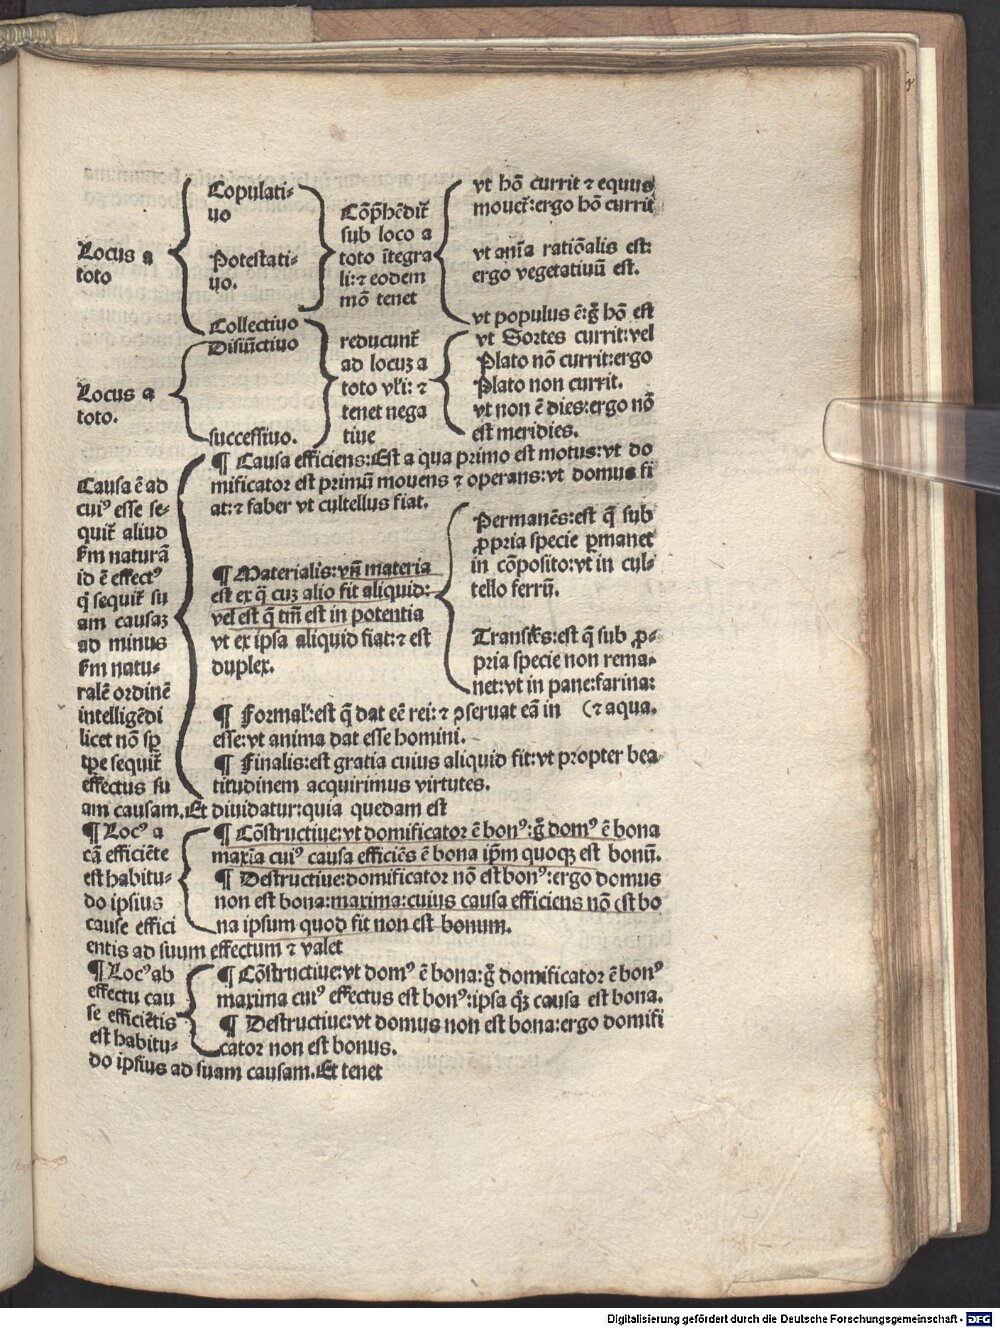 Locus a
toto
Copulati-
uo
Potestati-
uo.
Collectiuo
Cōp̄hēdit̄
sub loco a
toto ītegra
li: ⁊ eodem
mō tenet
vt hō currit ⁊ equus
mouet̄: ergo hō currit
vt aīa ratiōalis est:
ergo vegetatiuū est.
vt populus ē: g̊ hō est
Locus a
toto.
Disiūctiuo
successiuo.
reducunt̄
ad locuꝫ a
toto vl̄i: ⁊
tenet nega
tiue
vt Sortes currit: vel
Plato nō currit: ergo
Plato non currit.
vt non ē dies: ergo nō
est meridies.
Causa ē ad
cuiꝰ esse se-
quit̄ aliud
ẜm naturā
id ē effectꝰ
q̄ sequit̄ su
am causaꝫ
ad minus
ẜm natu-
ralē ordinē
intelligēdi
licet nō sꝑ
tꝑe sequit̄
effectus su
am causam. Et diuidatur: quia quedam est
¶ Causa efficiens: Est a qua primo est motus: vt do
mificator est primū mouens ⁊ operans: vt domus fi
at: ⁊ faber vt cultellus fiat.
¶ Materialis: vn̄ materia
est ex q̄ cuꝫ alio fit aliquid:
vel est q̄ tm̄ est in potentia
vt ex ipsa aliquid fiat: ⁊ est
duplex.
Permanēs: est q̄ sub
ꝓpria specie ꝑmanet
in cōposito: vt in cul-
tello ferrū.
Transiēs: est q̄ sub ꝓ-
pria specie non rema-
net: vt in pane: farina:
(⁊ aqua.
¶ Formal̄: est q̄ dat eē rei: ⁊ ꝯseruat eā in
esse: vt anima dat esse homini.
¶ Finalis: est gratia cuius aliquid fit: vt propter bea-
titudinem acquirimus virtutes.
¶ Locꝰ a
cā efficiēte
est habitu-
do ipsius
cause effici
entis ad suum effectum ⁊ valet
¶ Cōstructiue: vt domificator ē bonꝰ: g̊ domꝰ ē bona
maxīa cuiꝰ causa efficiēs ē bona ip̄m quoqꝫ est bonū.
¶ Destructiue: domificator nō est bonꝰ: ergo domus
non est bona: maxima: cuius causa efficiens nō est bo
na ipsum quod fit non est bonum.
¶ Locꝰ ab
effectu cau
se efficiētis
est habitu-
do ipsius ad suam causam. Et tenet
¶ Cōstructiue: vt domꝰ ē bona: g̊ domificator ē bonꝰ
maxima cuiꝰ effectus est bonꝰ: ipsa qꝫ causa est bona.
¶ Destructiue: vt domus non est bona: ergo domifi
cator non est bonus.
Digitalisierung gefördert durch die Deutsche Forschungsgemeinschaft - DFG